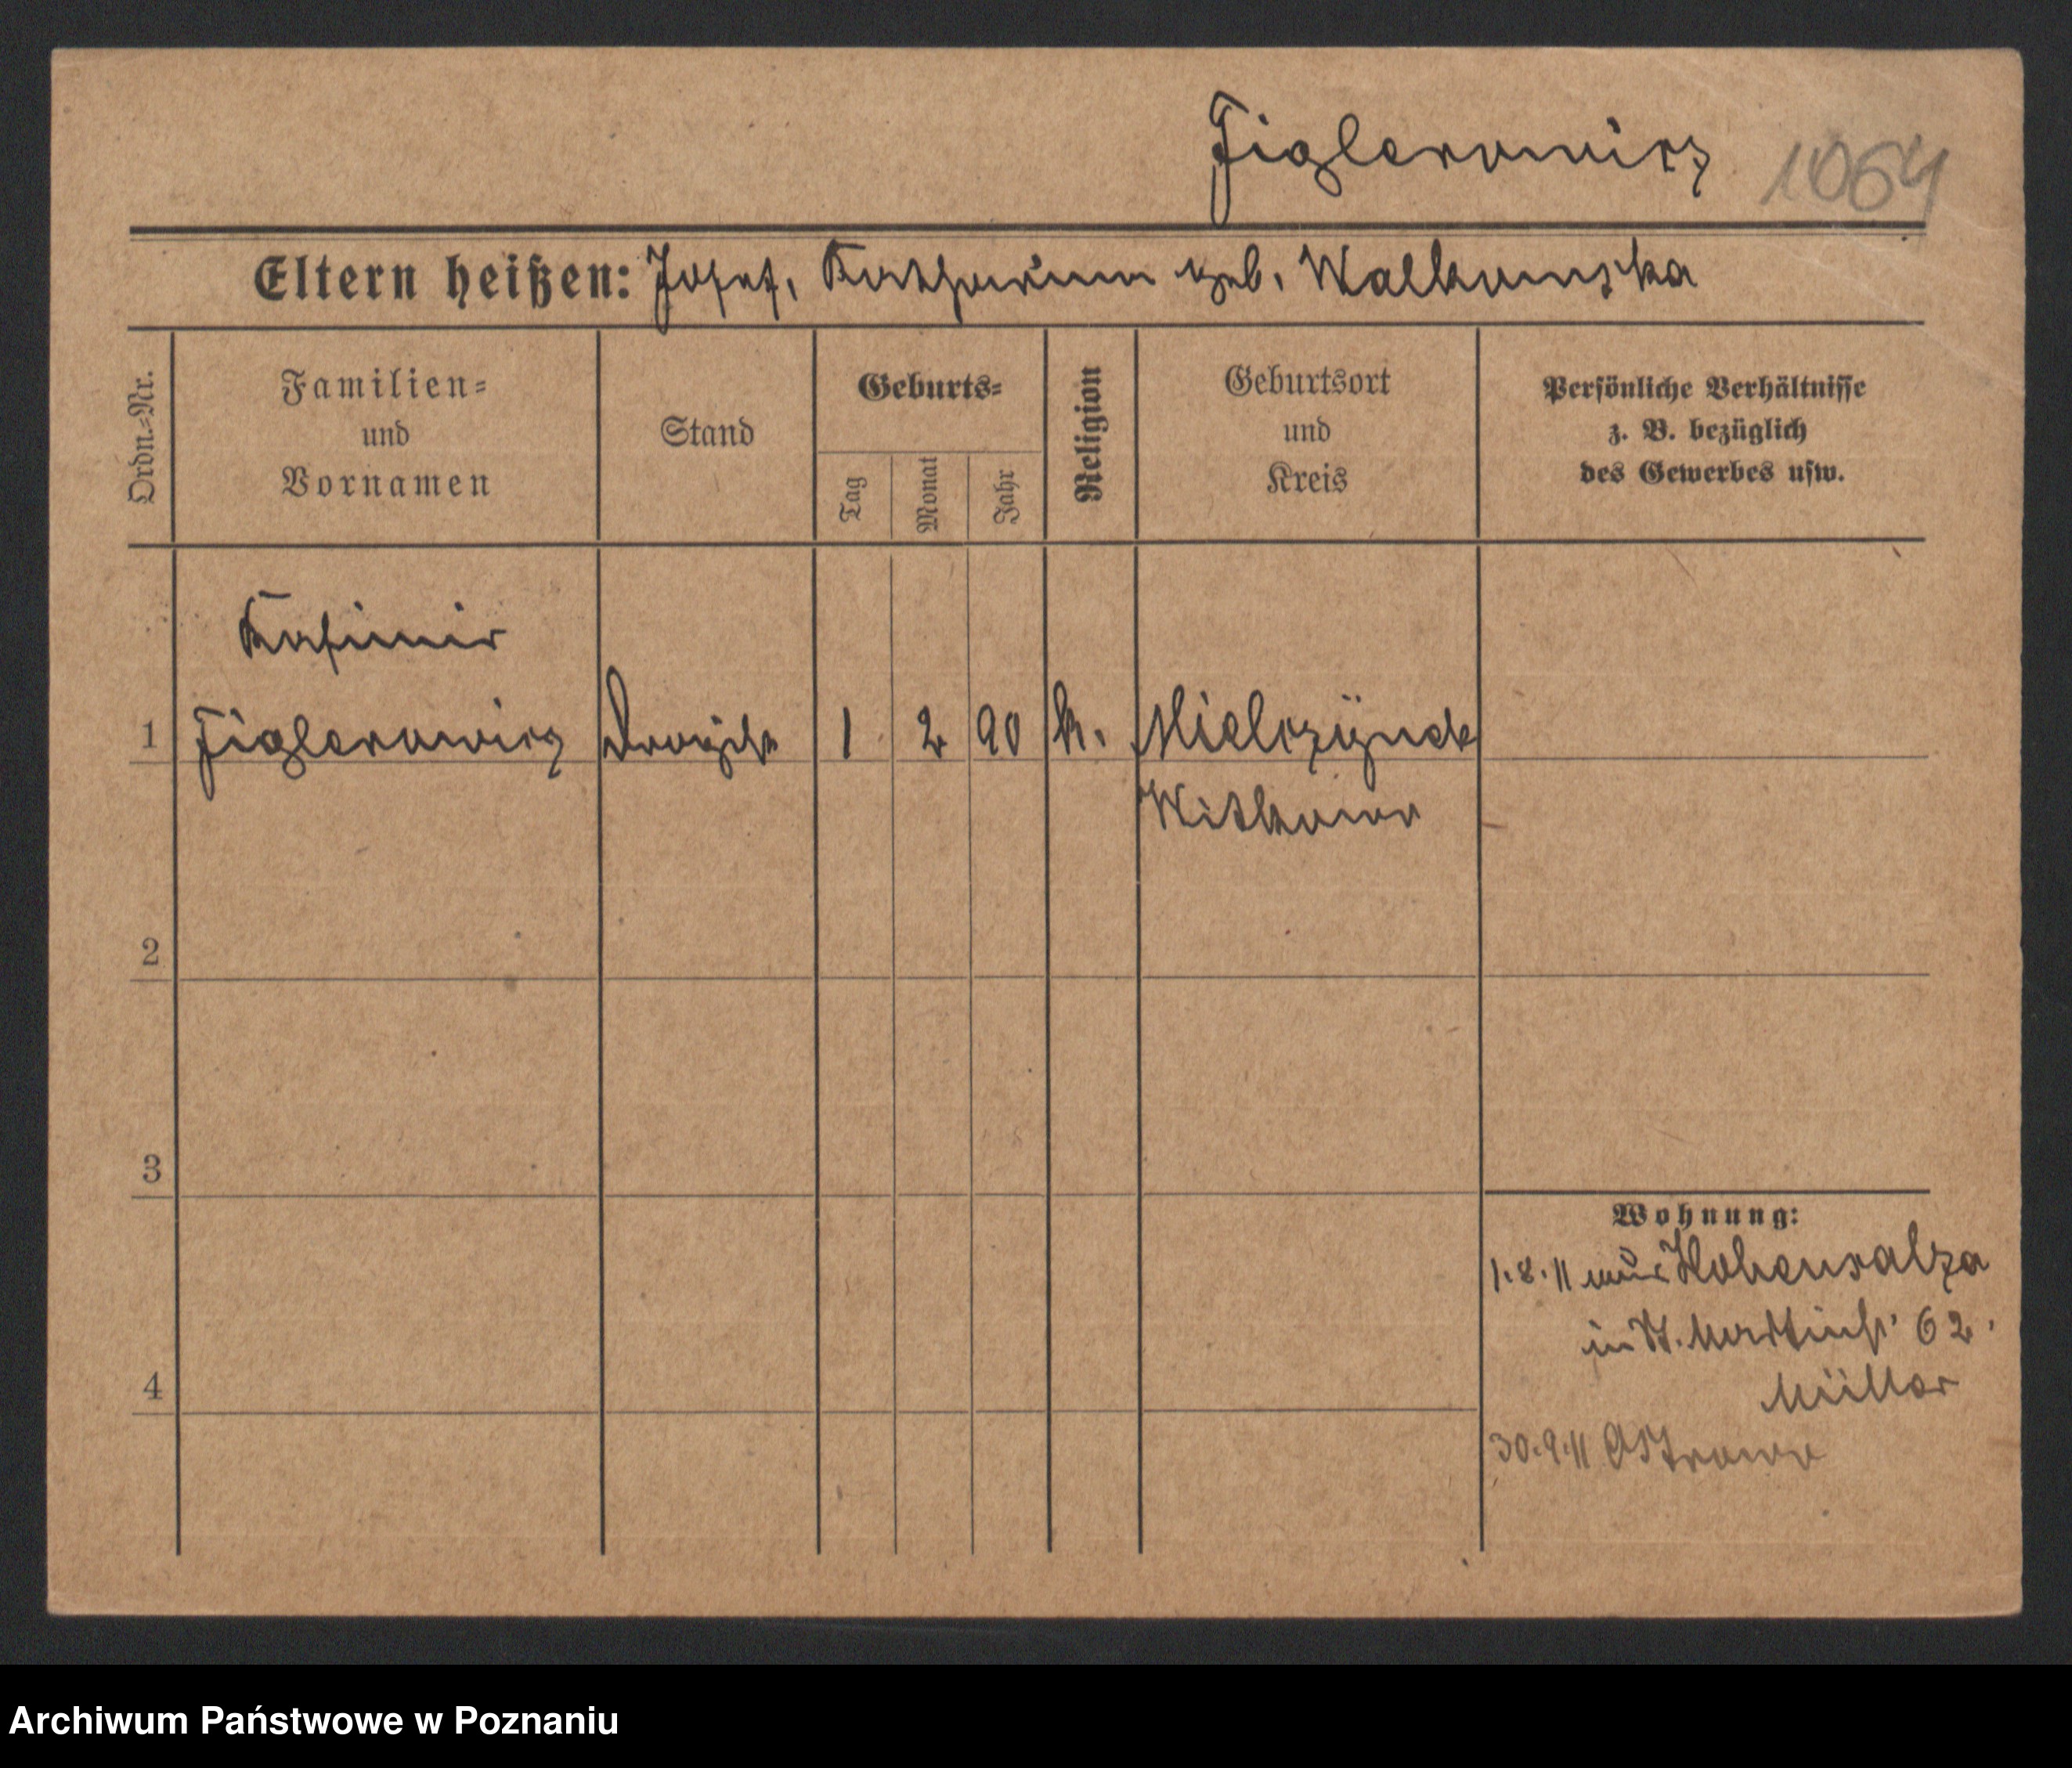 Figlerowicz 1064
Eltern heißen: Josef, Katharina geb. Walkowska
Ordn.-Nr.
Familien-
und
Vornamen
Stand
Geburts-
Tag
Monat
Jahr
Religion
Geburtsort
und
Kreis
Persönliche Verhältnisse
z. B. bezüglich
des Gewerbes usw.
Kasimir
1 Figlerowicz Drogist 1 2 90 k.
Witkowo
2
3
4
Wohnung:
1.8.11 aus Hohensalza
in St. Martinstr. 62.
Müller
30.9.11 Ostrowo
Archiwum Państwowe w Poznaniu